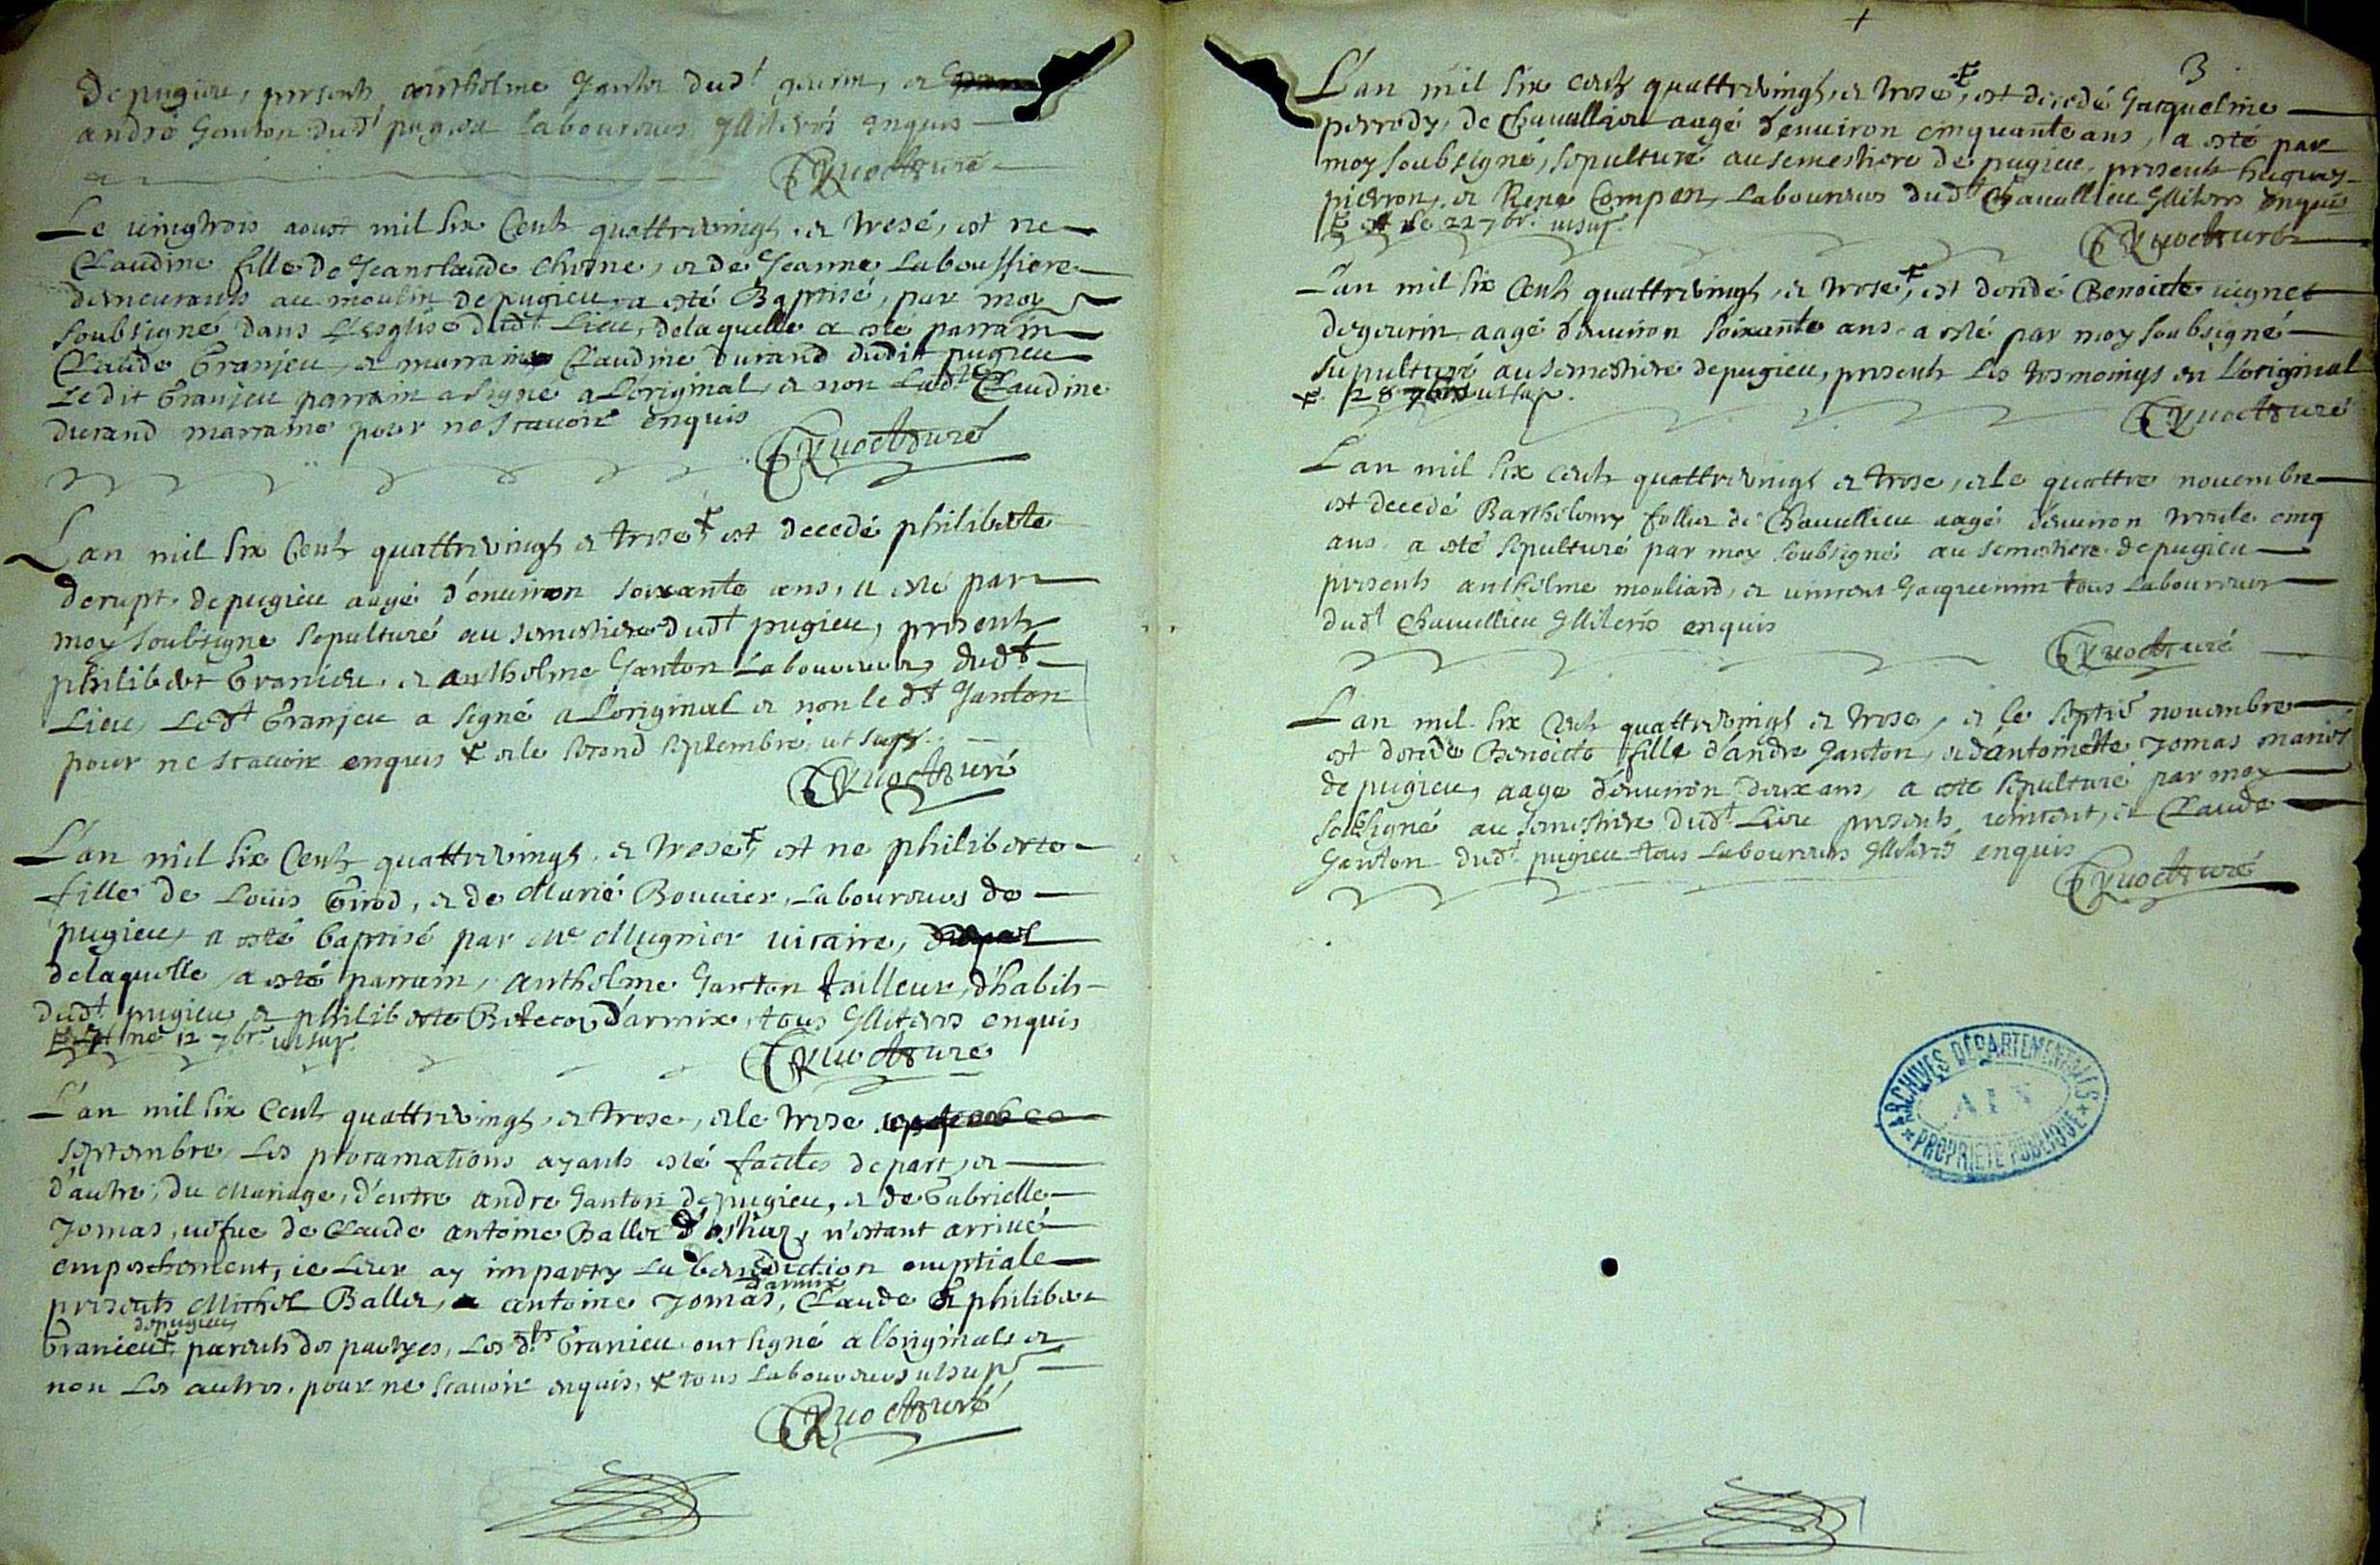 De pugieu, presents anthelme Janton dud^t gevrin, et
andré Ganton dud^t pugieu laboureurs Illiterés enquis
Quoct curé
Le vingtrois aoust mil six Cents quattrevingts, et trese, est ne
Claudine fille de Jeanclaude chesne, et de Jeanne Laboussiere
demeurants au moulin de pugieu, a esté Baptisé, par moy
soubsigné dans L'esglise dud^t Lieu, delaquelle a esté parrain
Claude Granjeu, et marraine Claudine durand dudit pugieu
Ledit Granjeu parrain a signé a L'original, et non Lad^te Claudine
durand marraine pour ne scavoir enquis
Quoct curé
L'an mil six Cents quattrevingts et trese ŧ est decedé philiberte
derupt, de pugieu aagé d'environ soixante ans, a esté par
moy soubsigne sepulturé au semestiere dud^t pugieu, presents
philibert Granieu, et anthelme Ganton Laboureurs dud^t
Lieu, Led^t Granjeu a signé a L'original et non le d^t Ganton
pour ne scavoir enquis ŧ et le second septembre, ut sup^r.
Quoct curé
L'an mil six Cents quattrevingts, et trese ŧ, est ne philiberte
fille de Louis Girod, et de Marie Bouvier, Laboureurs de
pugieu, a esté baptisé par M^e Mugnier vicaire,
delaquelle a esté parrain, anthelme Ganton tailleur d'habits
dud^t pugieu et philiberte d'armix, tous Illiterés enquis
ne 12 7br^e ut sup^r.
Quoct curé
L'an mil six Cents quattrevingts, et trese, et le trese
septembre, Les proclamations ayants esté faictes de part, et
d'autre, du Mariage, d'entre andre Ganton de pugieu, et de Gabrielle
Jomas, vefue de Claude antoine Ballet, n'estant arrivé
empeschement, ie Leur ay imparty La benediction nuptiale
presents Michel Ballet, antoine Jomas, Claude et philibert
d'armix
depugieu
Granieu ŧ parents des partyes, Les d^ts Granieu ont signé a l'original et
non Les autres, pour ne scavoir enquis, ŧ tous Laboureurs ut sup^r
Quoct curé
3
L'an mil six cents quattrevingts, et trese ŧ, est decedé Jacquelme
perrody, de Chavullieu aagé d'environ cinquante ans, a esté par
moy soubsigné, sepulturé au semestiere de pugieu, presents huguey
pierron, et Rene Compan, Laboureurs dud^t Chavullieu Illiterés enquis
ŧ le 22 7br^e. ut sup^r.
Quoct curé
L'an mil six Cents quattrevingts, et trese ŧ, est decedé Benoicte vignet
de gevrin, aagé d'environ soixante ans, a esté par moy soubsigné
sepulturé au semestiere de pugieu, presents Les tesmoings en L'original
ŧ 28 7bre ut sup^r.
Quoct curé
L'an mil six cents quattrevingts et trese, et le quattre novembre
est decedé Barthelemy follier de Chavullieu aagé d'environ trente cinq
ans, a esté sepulturé par moy soubsigné au semestiere de pugieu
presents anthelme mouliard, et vincent Jacquemin tous Laboureurs
dud^t Chavullieu Illiterés enquis
Quoct curé
L'an mil six Cents quattrevingts et trese, et le septie^e novembre
est decede Benoicte fille d'andre Ganton, et d'antoinette Jomas mariés
de pugieu, aagé d'environ deux ans, a esté sepulturé par moy
soubsigné au semestiere dud^t Lieu presents vincent, et Claude
Ganton dud^t pugieu tous Laboureurs Illiterés enquis
Quoct curé
ARCHIVES DÉPARTEMENTALES
AIN
PROPRIÉTÉ PUBLIQUE